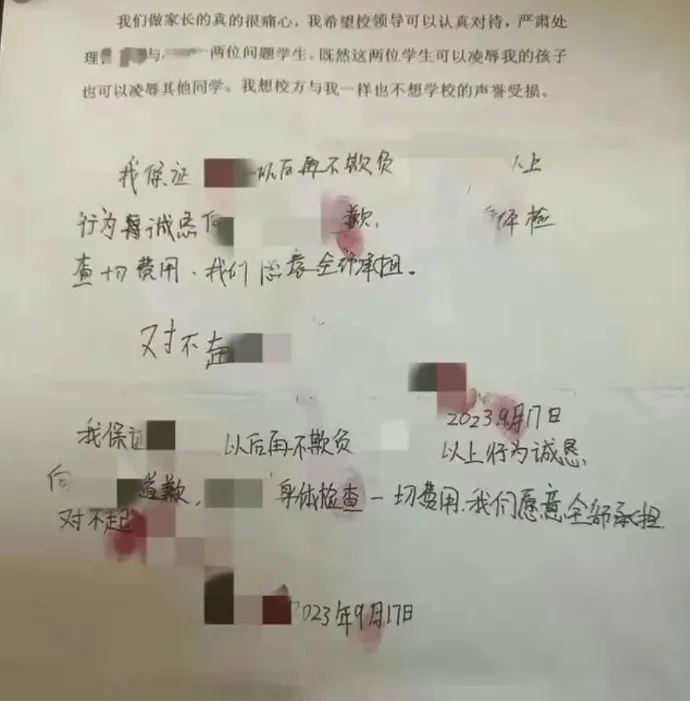 我们做家长的真的很痛心，我希望校领导可以认真对待，严肃处
理 与 两位问题学生。既然这两位学生可以凌辱我的孩子
也可以凌辱其他同学。我想校方与我一样也不想学校的声誉受损。
我保证 以后再不欺负 以上
行为 诚恳向 歉, 体检
查 切费用、我们 意全部承担。
对不起
2023.9月17日
我保证 以后再不欺负 以上行为诚恳
向 道歉, 身体检查一切费用.我们愿意全部承担.
对不起
2023年9月17日